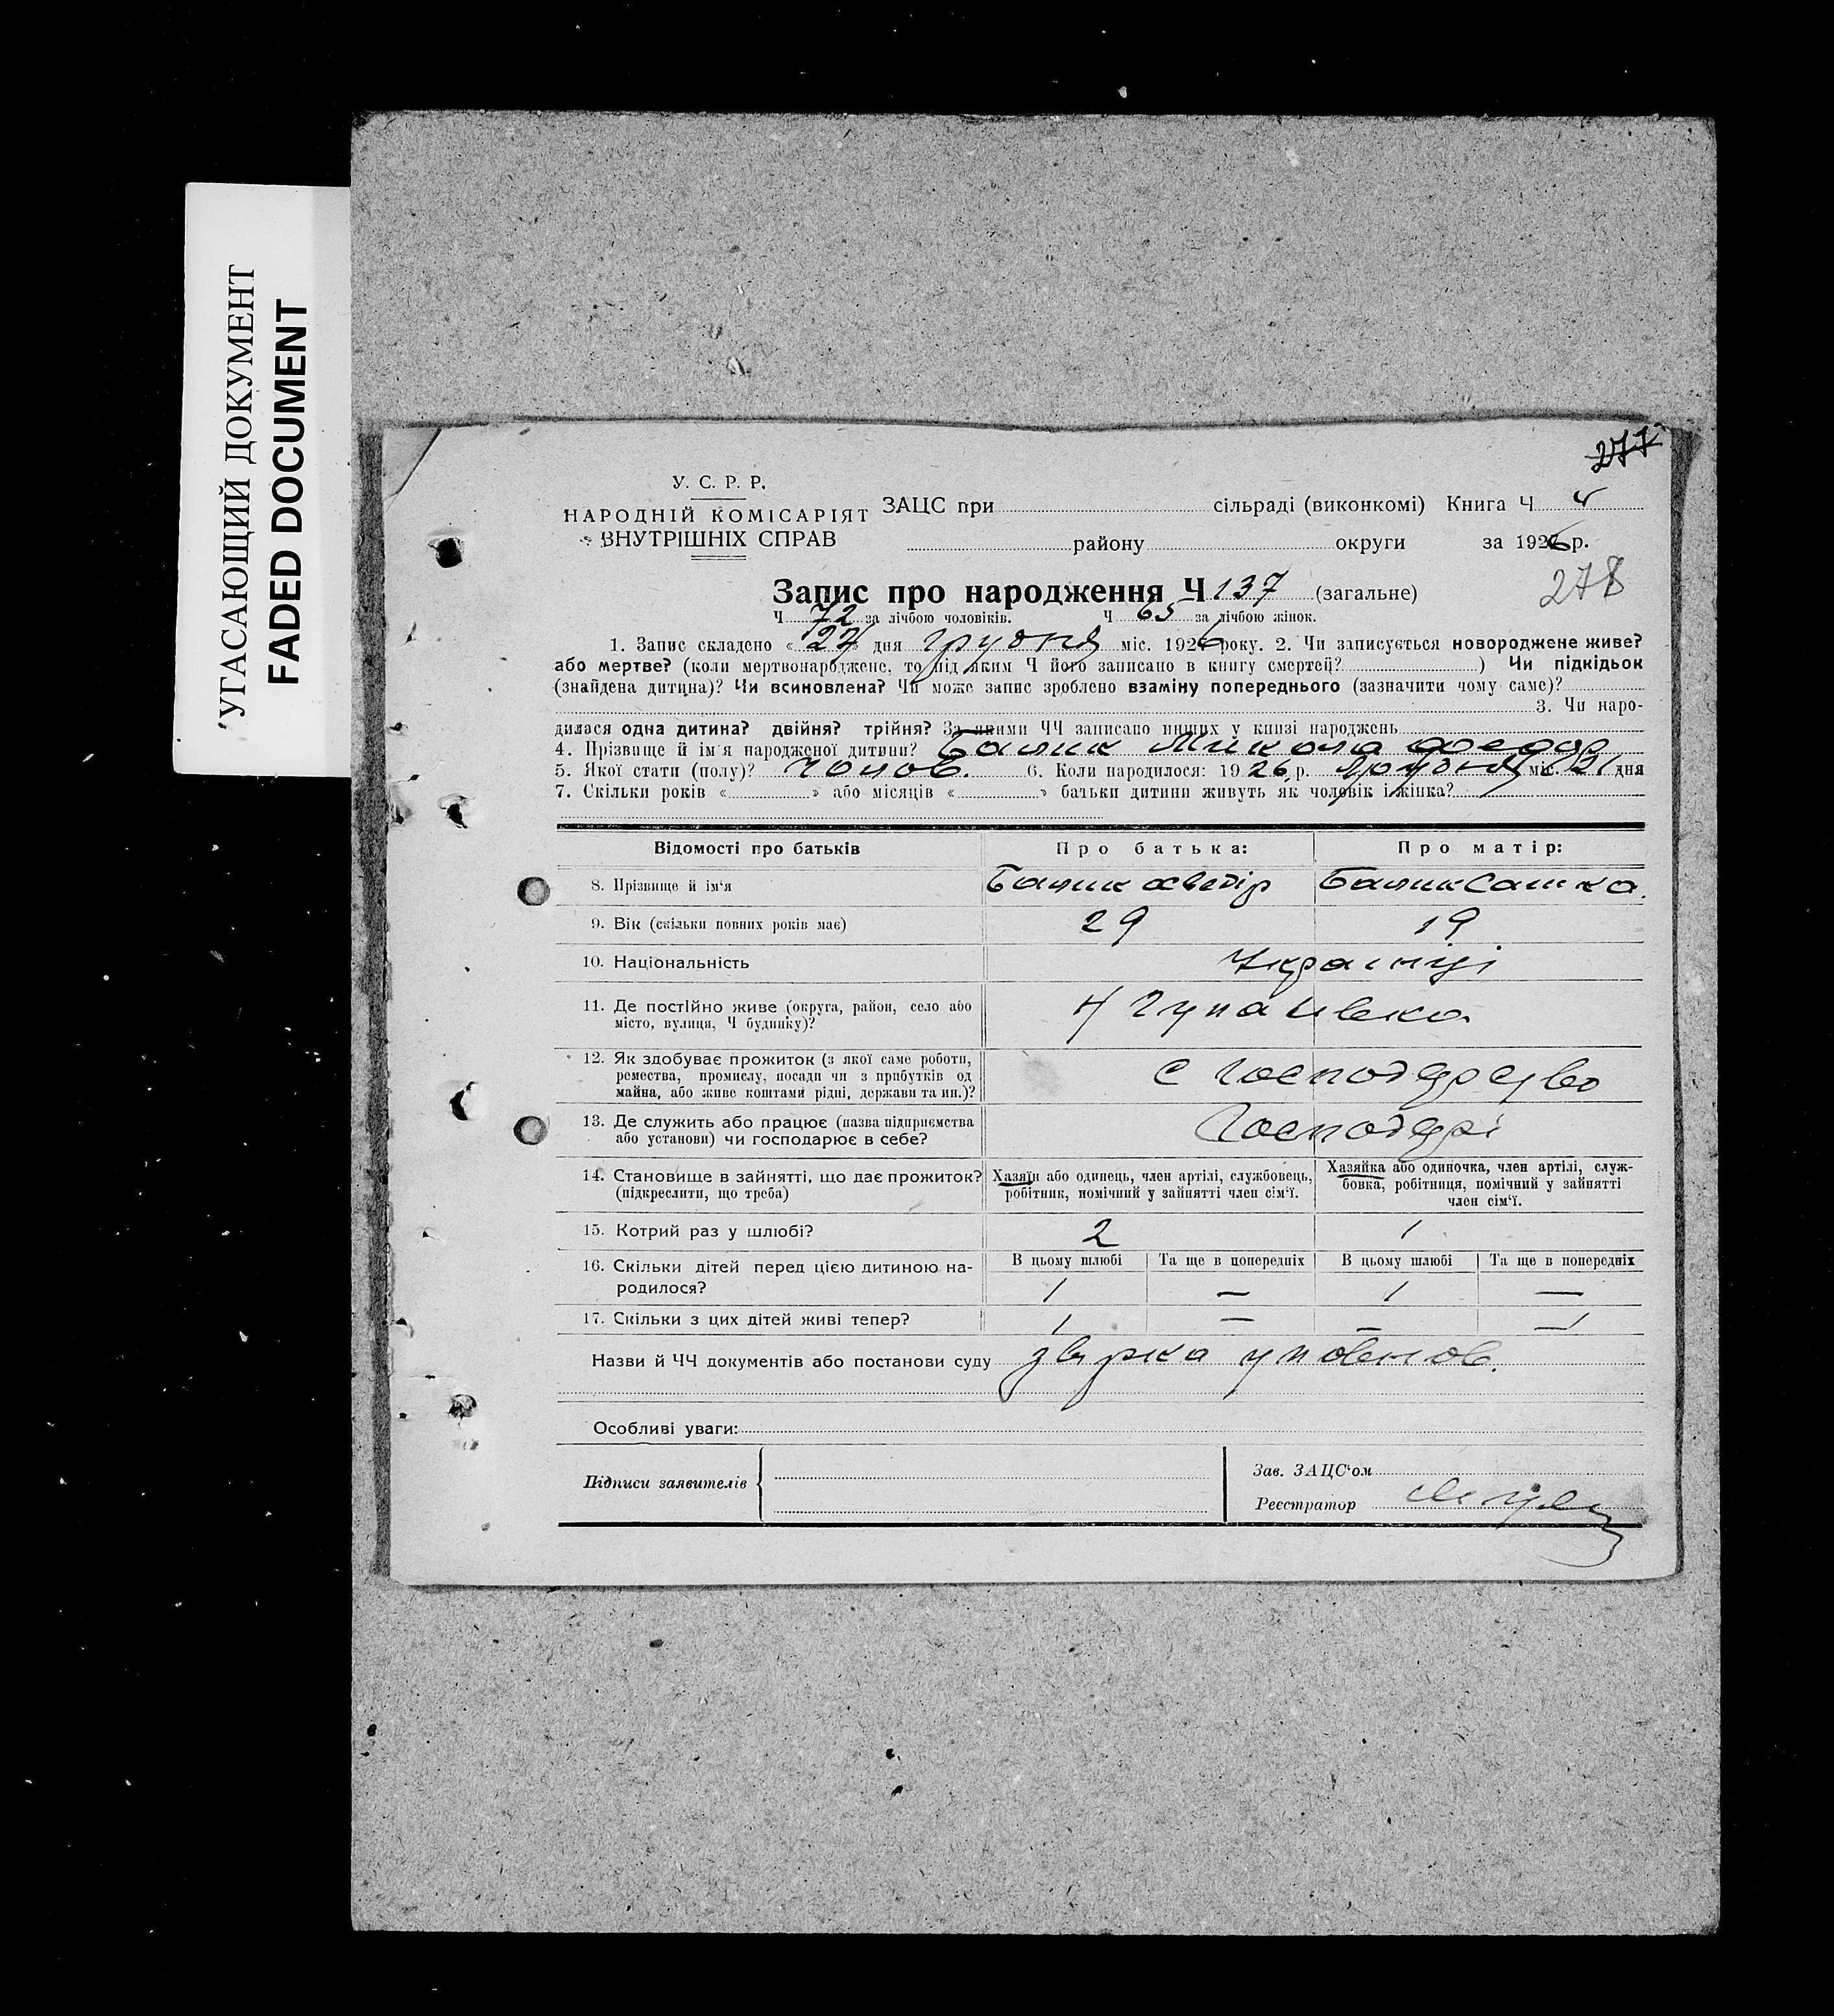 УГАСАЮЩИЙ ДОКУМЕНТ
FADED DOCUMENT
277
У. С. Р. Р.
НАРОДНІЙ КОМІСАРІЯТ
ВНУТРІШНІХ СПРАВ
ЗАЦС при сільраді (виконкомі) Книга Ч 4
району округи за 1926 р.
278
Запис про народження Ч 137 (загальне)
Ч 72 за лічбою чоловіків. Ч 65 за лічбою жінок.
1. Запис складено « 27 » дня грудня міс. 1926 року. 2. Чи записується новороджене живе?
або мертве? (коли мертвонароджене, то під яким Ч його записано в книгу смертей? ) Чи підкідьок
(знайдена дитина)? Чи всиновлена? Чи може запис зроблено взаміну попереднього (зазначити чому саме)?
3. Чи наро-
дилася одна дитина? двійня? трійня? За якими ЧЧ записано инших у книзі народжень
4. Прізвище й ім'я народженої дитини? Балик Микола Федор
5. Якої стати (полу)? чолов. 6. Коли народилося: 1926 р. грудня міс. 21 дня
7. Скільки років « » або місяців « » батьки дитини живуть як чоловік і жінка?
Відомості про батьків Про батька: Про матір:
8. Прізвище й ім'я Балик Балик Сашка.
9. Вік (скільки повних років має) 29 19
10. Національність Українці
11. Де постійно живе (округа, район, село або
місто, вулиця, Ч будинку)?
12. Як здобуває прожиток (з якої саме роботи,
ремества, промислу, посади чи з прибутків од
майна, або живе коштами рідні, держави та ин.)?
с господарство
13. Де служить або працює (назва підприємства
або установи) чи господарює в себе?
Господарі
14. Становище в зайнятті, що дає прожиток?
(підкреслити, що треба)
Хазяїн або одинець, член артілі, службовець,
робітник, помічний у зайнятті член сім'ї.
Хазяйка або одиночка, член артілі, служ-
бовка, робітниця, помічний у зайнятті
член сім'ї.
15. Котрий раз у шлюбі? 2 1
16. Скільки дітей перед цією дитиною на-
родилося?
В цьому шлюбі Та ще в попередніх В цьому шлюбі Та ще в попередніх
1 — 1 —
17. Скільки з цих дітей живі тепер? 1 — —
Назви й ЧЧ документів або постанови суду
Особливі уваги:
Підписи заявителів
Зав. ЗАЦС'ом
Реєстратор